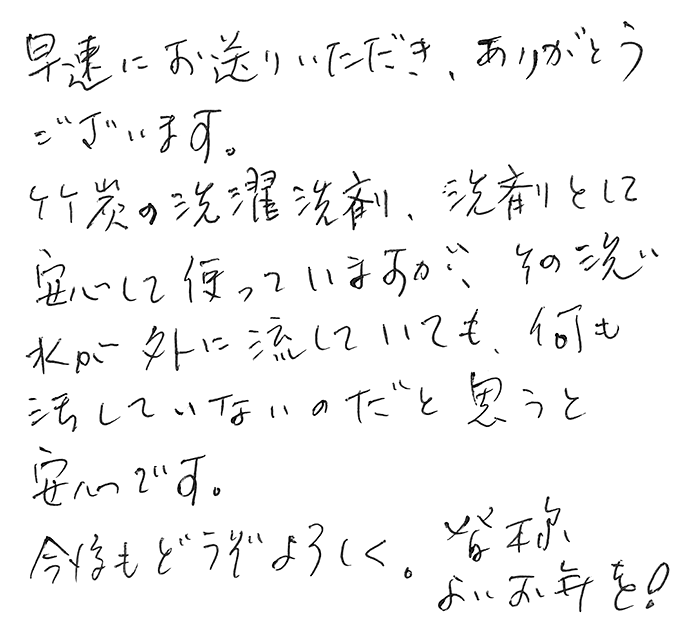 早速にお送りいただき、ありがとう
ございます。
竹炭の洗濯洗剤、洗剤として
安心して使っていますが、その洗い
水が外に流していても、何も
汚していないのだと思うと
安心です。
今後もどうぞよろしく。
皆様
よいお年を!